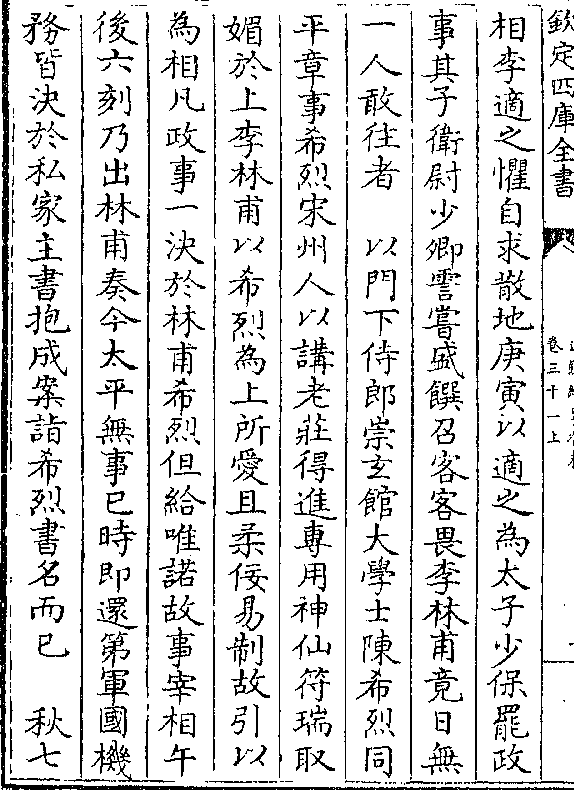 欽定四庫全書
卷三十一上
相李適之懼自求散地庚寅以適之為太子少保罷政
事其子衛尉少卿霅嘗盛饌召客客畏李林甫竟日無
一人敢往者　以門下侍郎崇玄館大學士陳希烈同
平章事希烈宋州人以講老莊得進專用神仙符瑞取
媚於上李林甫以希烈為上所愛且柔佞易制故引以
為相凡政事一決於林甫希烈但給唯諾故事宰相午
後六刻乃出林甫奏今太平無事巳時即還第軍國機
務皆決於私家主書抱成案詣希烈書名而已　秋七